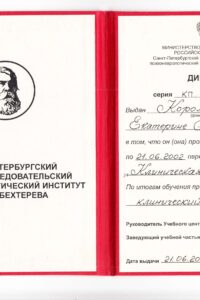 ТЕРБУРГСКИЙ
ЕДОВАТЕЛЬСКИЙ
ГИЧЕСКИЙ ИНСТИТУТ
БЕХТЕРЕВА
МИНИСТЕРСТВО
РОССИЙСК
Санкт-Петербургский
психоневрологический
ДИ
серия КП
Выдан Корол
Екатерине
в том, что он (она) про
по 21.06.2002 перес
"Клиническа
По итогам обучения пр
клинический
Руководитель Учебного цент
Заведующий учебной частью
Дата выдачи 21.06.20